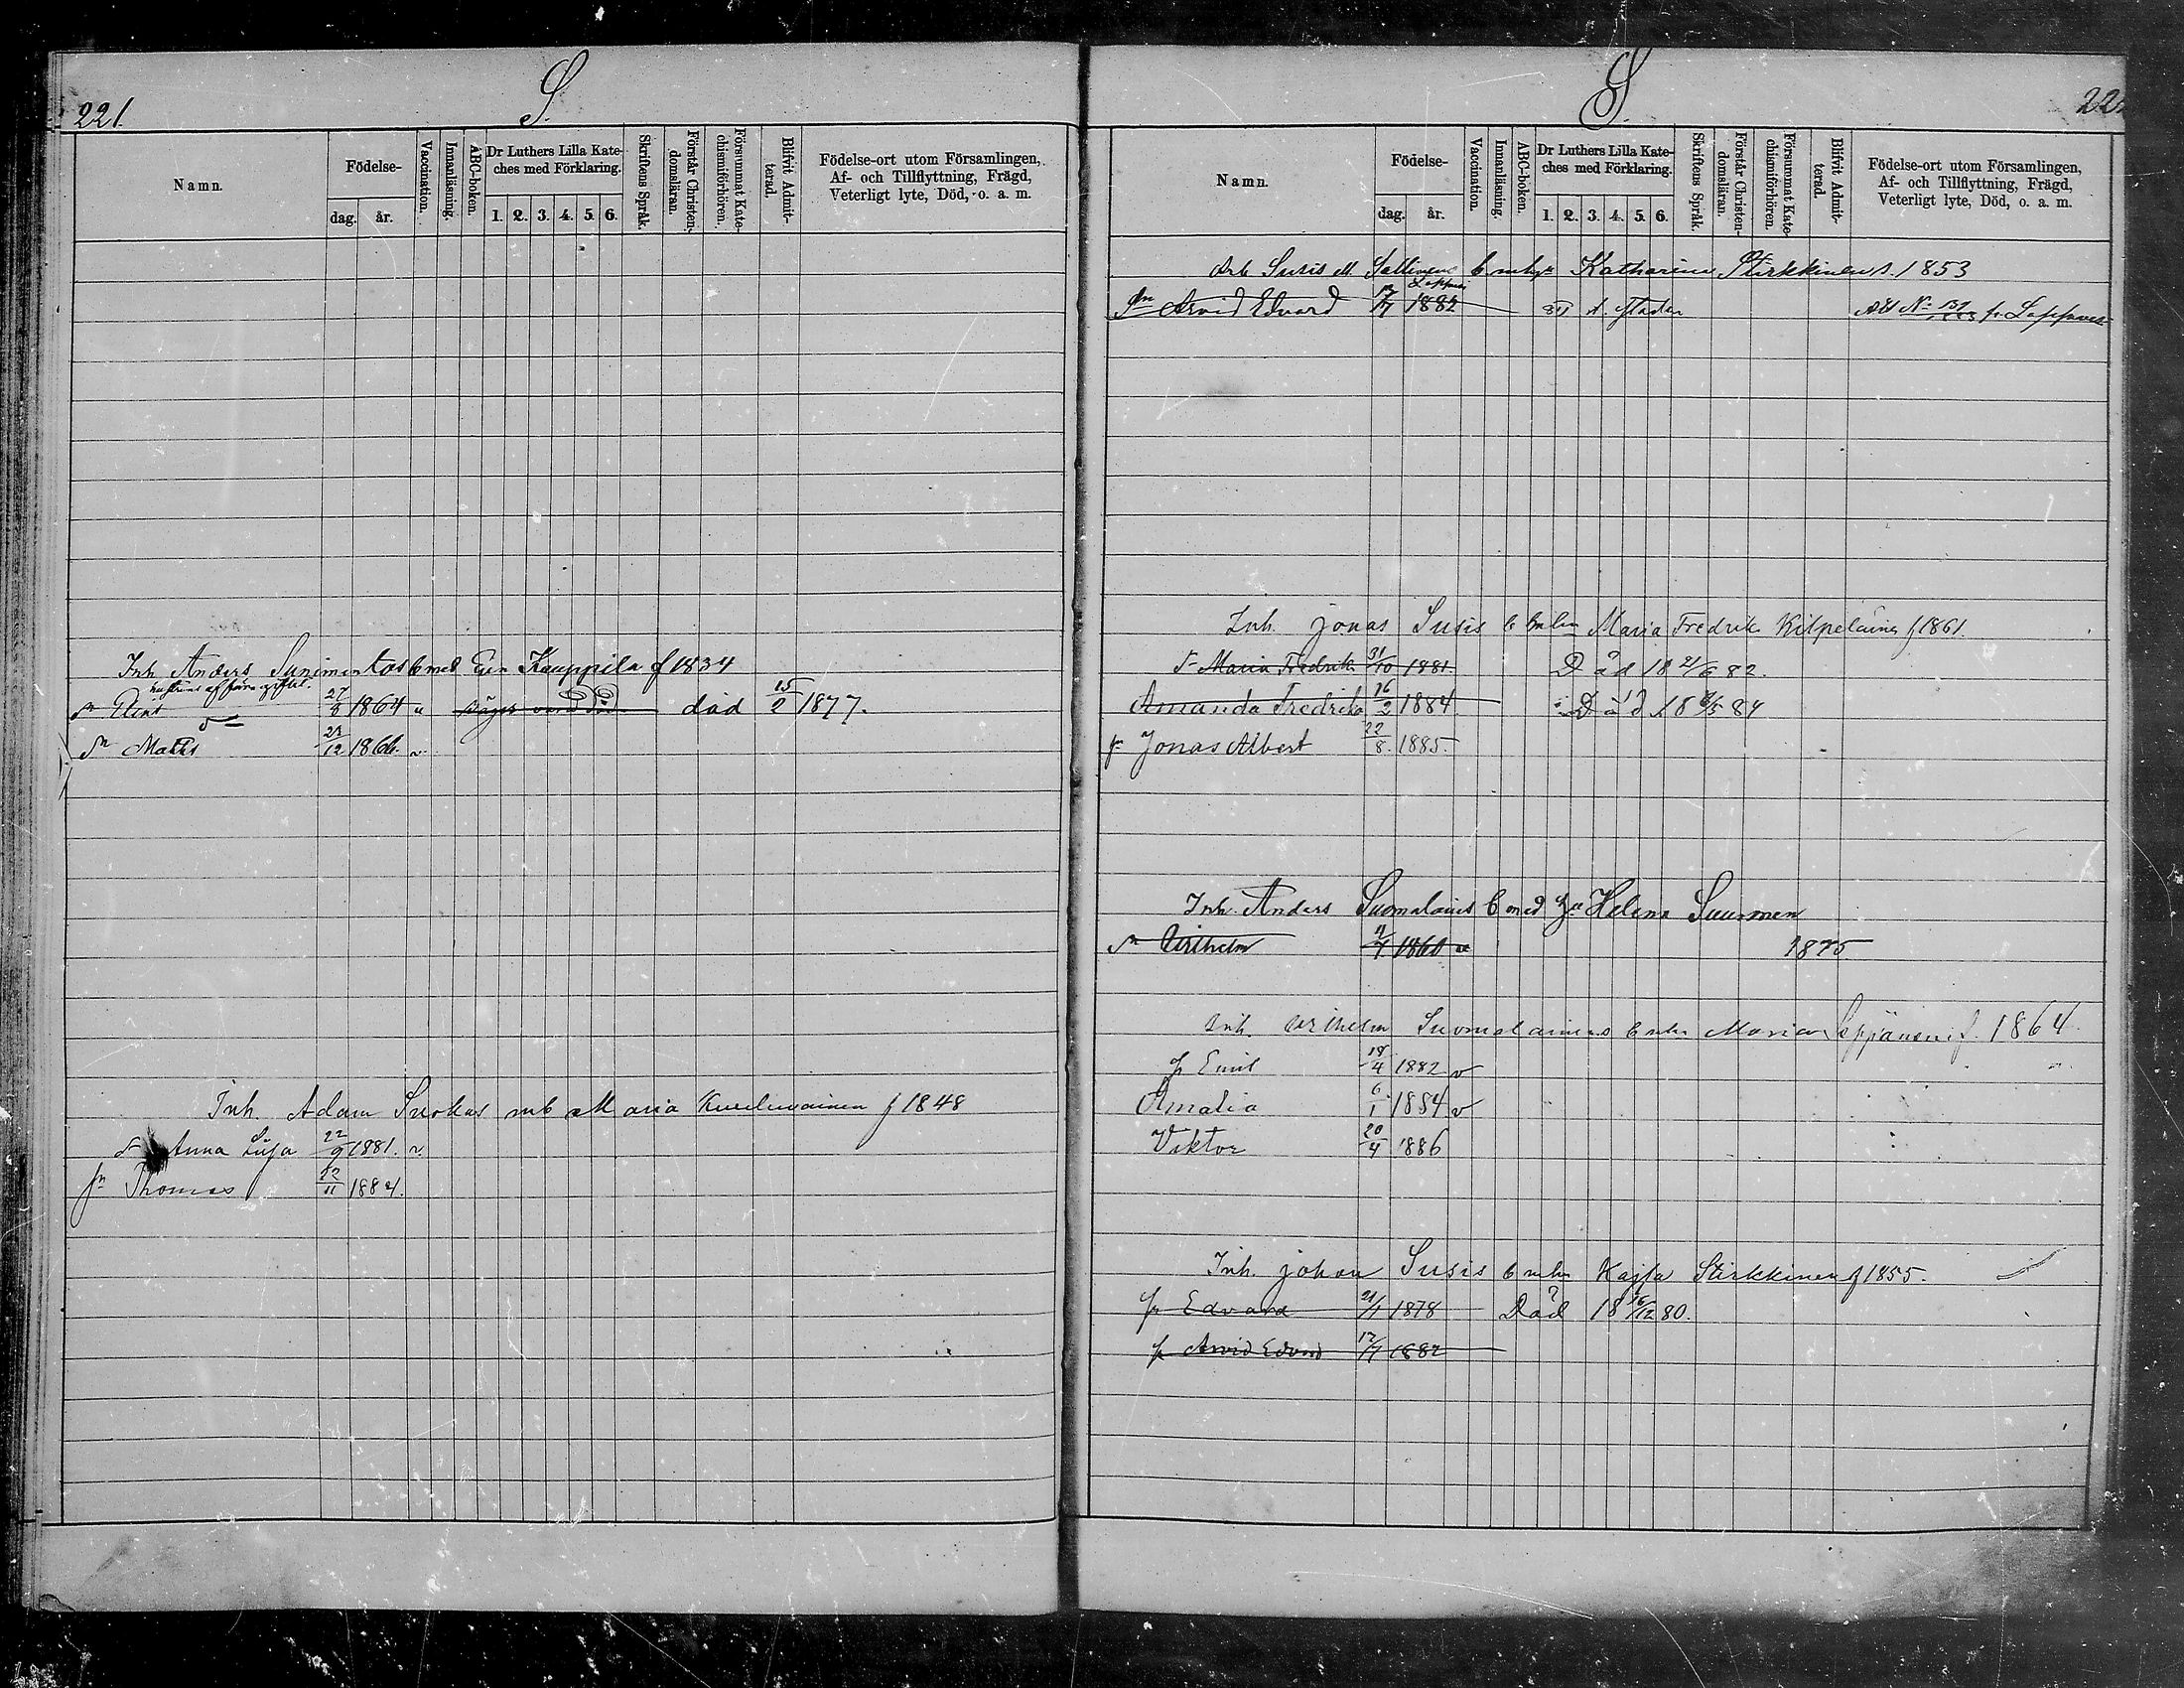 221.
S.
Namn.
Födelse-
dag. år.
Vaccination.
Innanläsning.
ABC-boken.
Dr Luthers Lilla Kate-
ches med Förklaring.
1. 2. 3. 4. 5. 6.
Skriftens Språk.
Förstår Christen-
domsläran.
Försummat Kate-
chismiförhören.
Blifvit Admit-
terad.
Födelse-ort utom Församlingen,
Af- och Tillflyttning, Frägd,
Veterligt lyte, Död, o. a. m.
Inh. Anders b med Kauppila f 1834
27/8 1864 död 15/2 1877.
Matts 23/12 1866. v.
Inh. Adam Suokas mb Maria f 1848
Anna Lisa 22/9 1881. v.
Thomas 12/11 1884.
S.
Namn.
Födelse-
dag. år.
Vaccination.
Innanläsning.
ABC-boken.
Dr Luthers Lilla Kate-
ches med Förklaring.
1. 2. 3. 4. 5. 6.
Skriftens Språk.
Förstår Christen-
domsläran.
Försummat Kate-
chismiförhören.
Blifvit Admit-
terad.
Födelse-ort utom Församlingen,
Af- och Tillflyttning, Frägd,
Veterligt lyte, Död, o. a. m.
Susis Katharina Stirkkinen 1853
Arvid Edvard 1882
Inh. Jonas Susis Maria Fredrika Kilpeläinen f 1861.
Maria Fredrik. 31/10 1881. Död 18 21/6 82.
Amanda Fredrika 16/2 1884 Död 18 84
Jonas Albert 22/8. 1885.
Inh. Anders b med Helena Suurnen
Wilhelm 1860 1875
Inh. Wilhelm Suomalainens Maria f. 1864.
Emil 18/4 1882 v
Amalia 6/1 1884 v
Viktor 20/4 1886
Inh. Johan Susis Kajsa Stirkkinen f 1855.
Edvard 21/1 1878 Död 18 16/12 80.
Arvid Edvard 1882